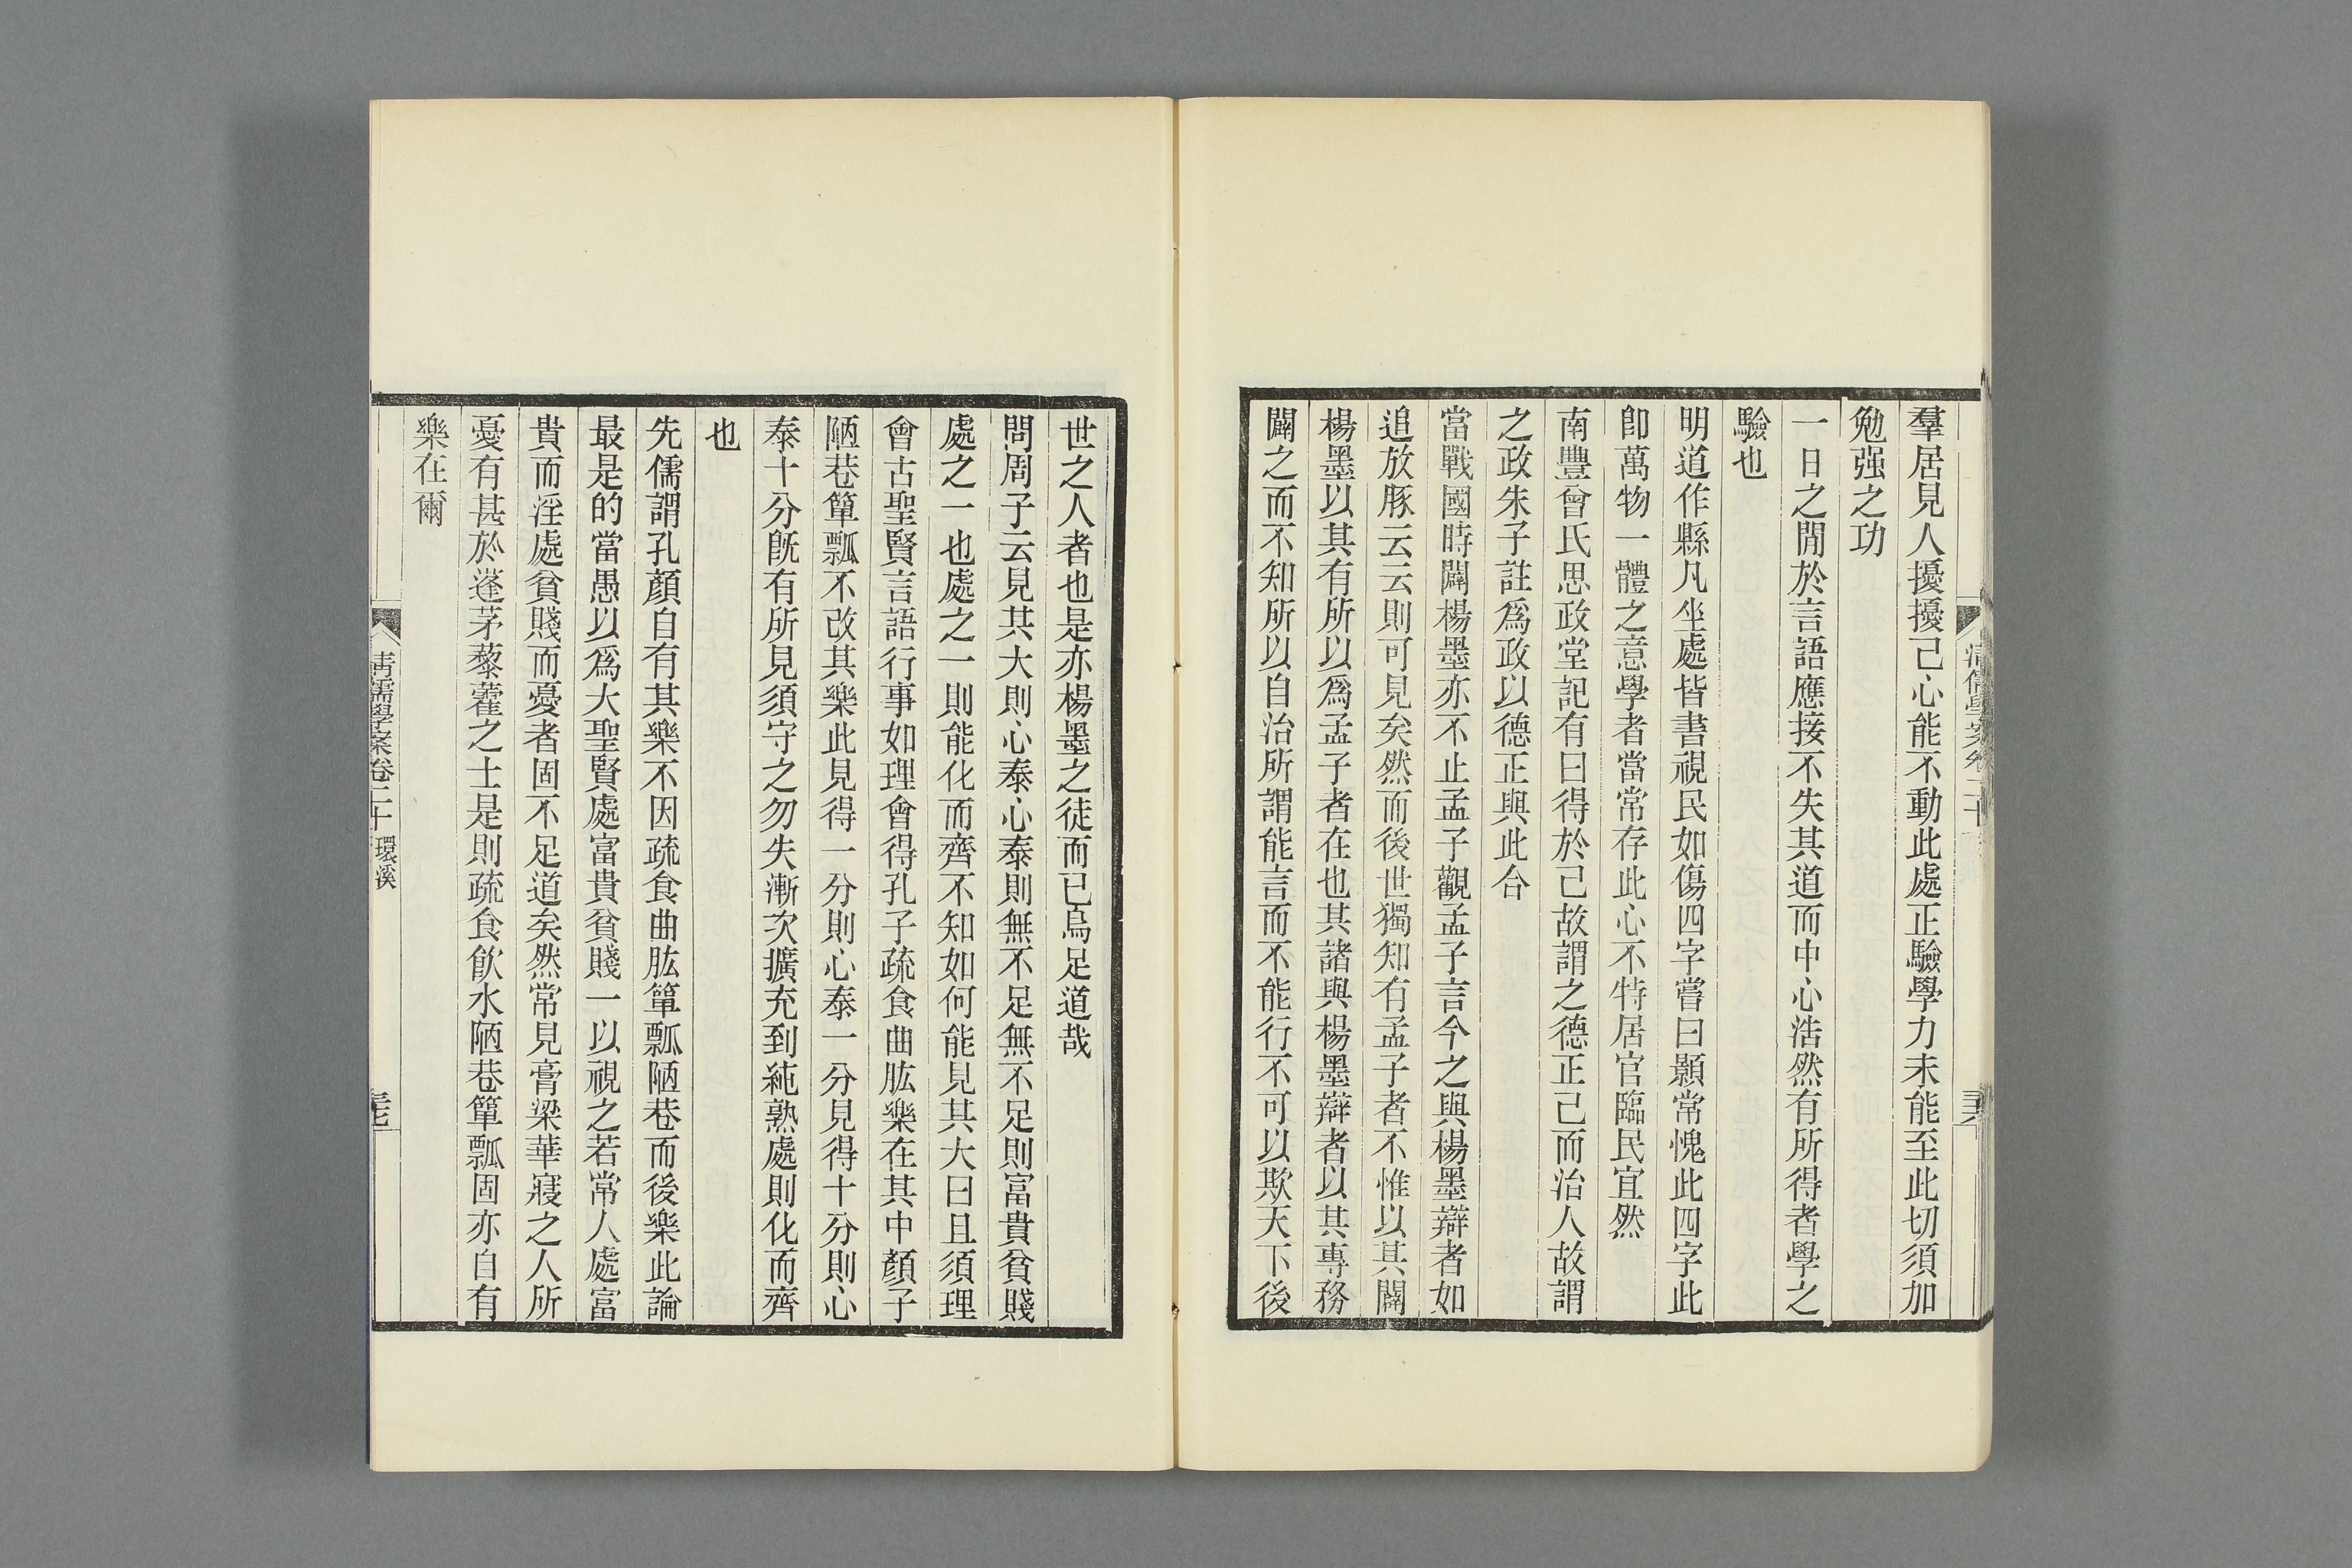 羣居見人擾擾己心能不動此處正驗學力未能至此切須加
勉强之功
一日之閒於言語應接不失其道而中心浩然有所得者學之
驗也
明道作縣凡坐處皆書視民如傷四字嘗曰顥常愧此四字此
卽萬物一體之意學者當常存此心不特居官臨民宜然
南豐曾氏思政堂記有曰得於己故謂之德正己而治人故謂
之政朱子註爲政以德正與此合
當戰國時闢楊墨亦不止孟子觀孟子言今之與楊墨辯者如
追放豚云云則可見矣然而後世獨知有孟子者不惟以其闢
楊墨以其有所以爲孟子者在也其諸與楊墨辯者以其專務
闢之而不知所以自治所謂能言而不能行不可以欺天下後
世之人者也是亦楊墨之徒而已烏足道哉
問周子云見其大則心泰心泰則無不足無不足則富貴貧賤
處之一也處之一則能化而齊不知如何能見其大曰且須理
會古聖賢言語行事如理會得孔子疏食曲肱樂在其中顏子
陋巷簞瓢不改其樂此見得一分則心泰一分見得十分則心
泰十分旣有所見須守之勿失漸次擴充到純熟處則化而齊
也
先儒謂孔顏自有其樂不因疏食曲肱簞瓢陋巷而後樂此論
最是的當愚以爲大聖賢處富貴貧賤一以視之若常人處富
貴而淫處貧賤而憂者固不足道矣然常見膏粱華寢之人所
憂有甚於蓬茅藜藿之士是則疏食飮水陋巷簞瓢固亦自有
樂在爾
清儒學案卷二十 環溪